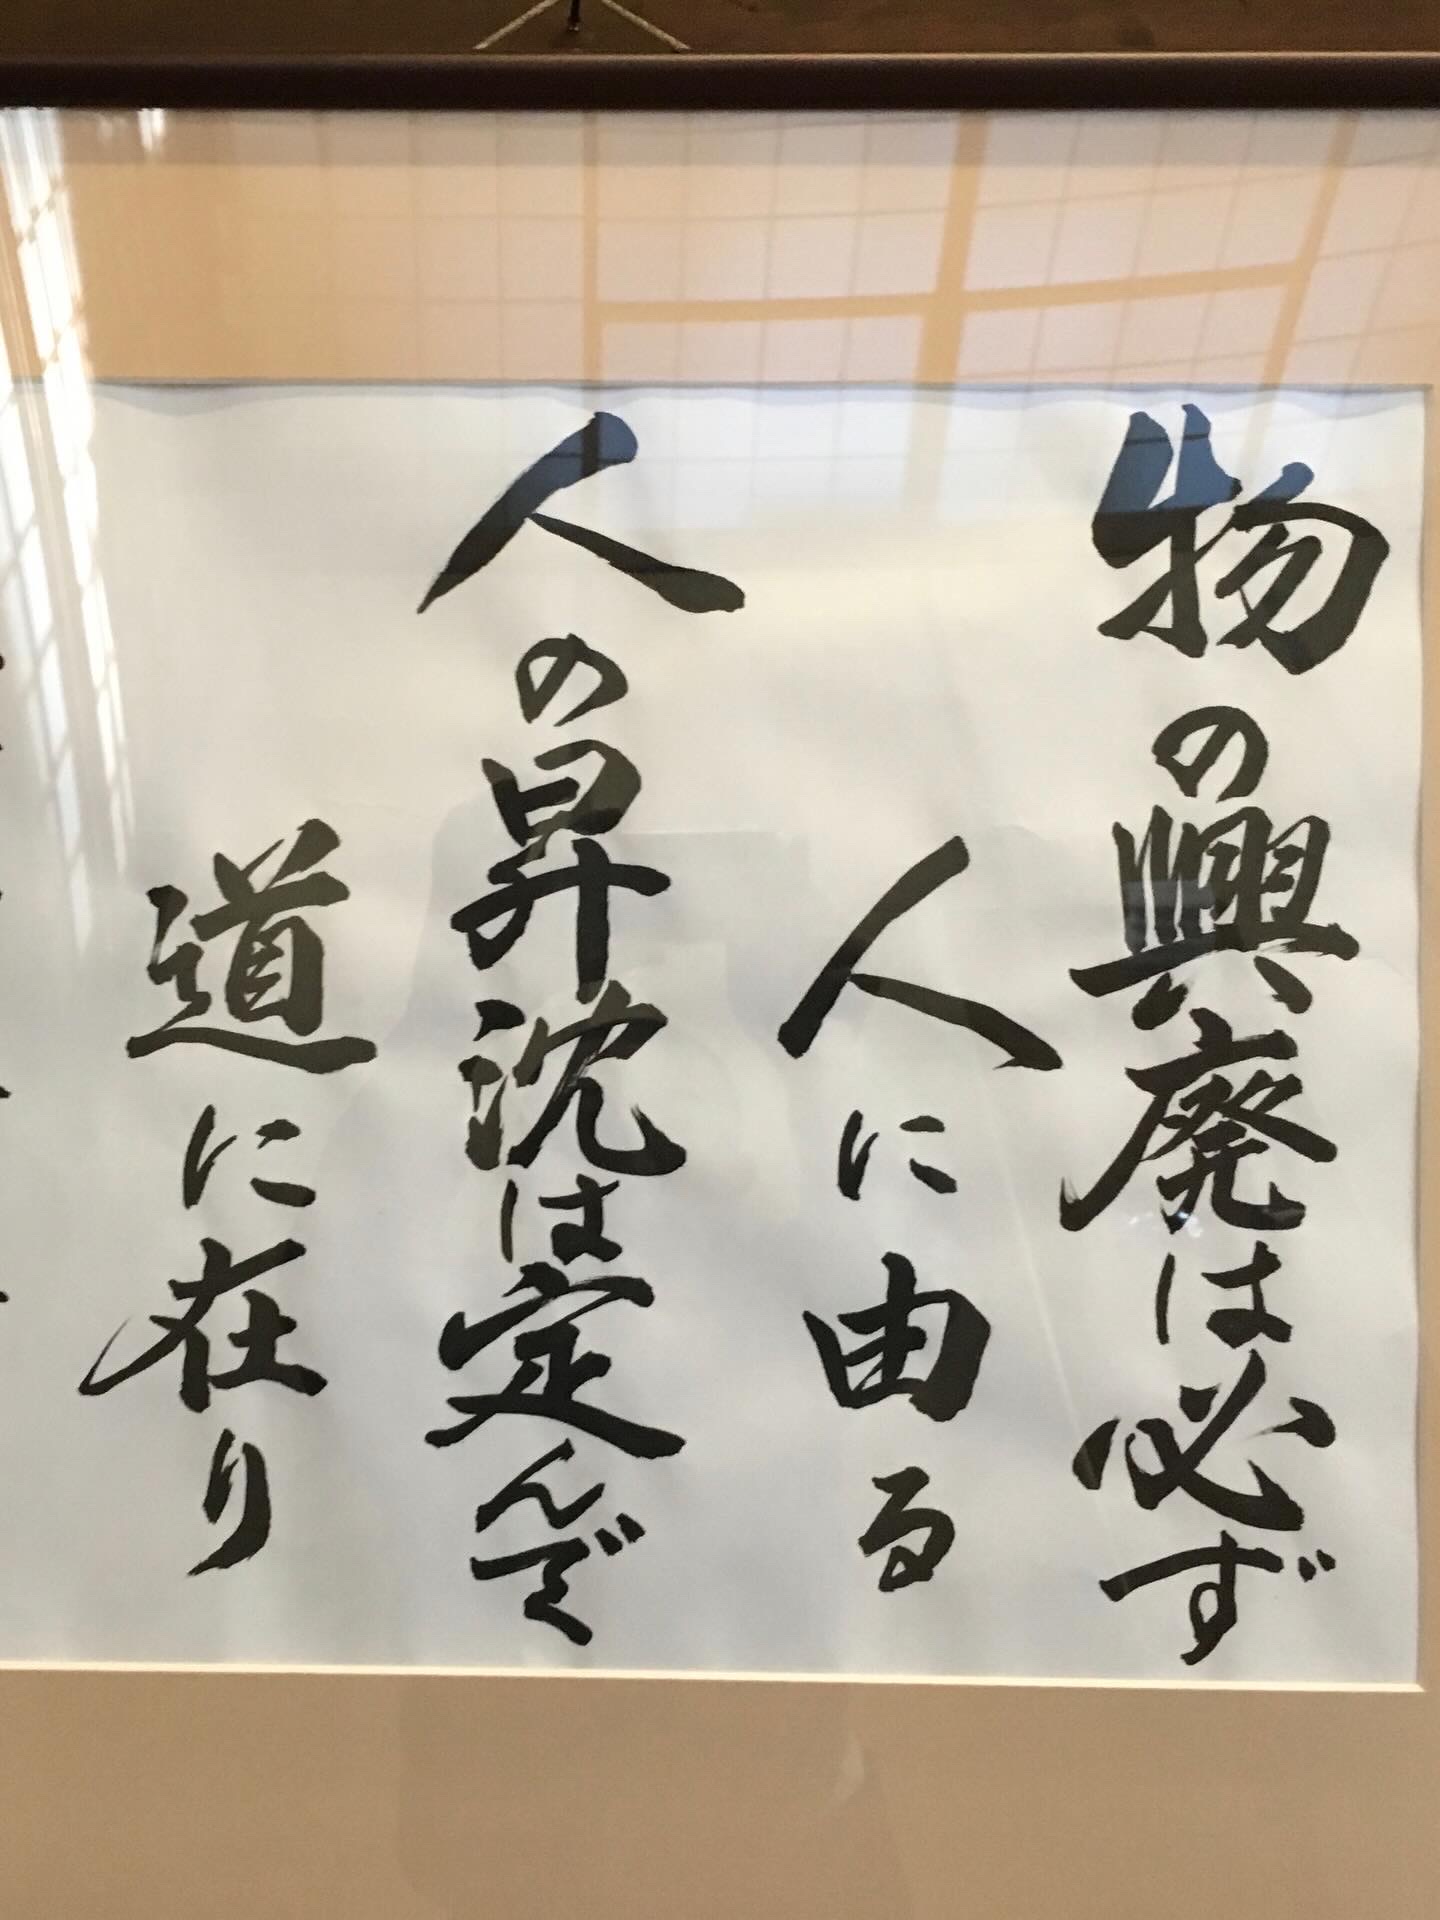 物の興廃は必ず
人に由る
人の昇沈は定んで
道に在り